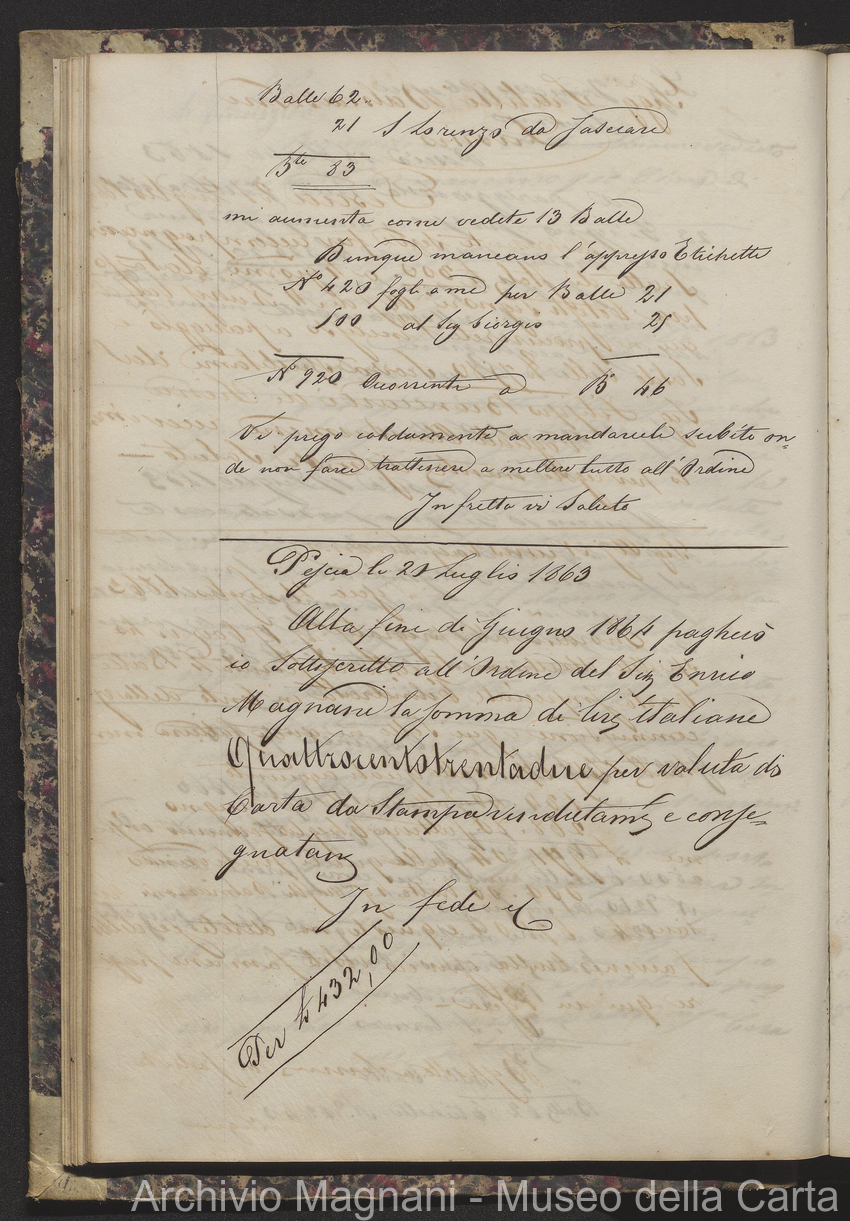 Balle 62.
21 S Lorenzo da fasciare
Ble 83
mi aumenta come vedete 13 Balle
Dunque mancano l'appresso Etichette
No 420 fogli a me per Balle 21
500 al Sig Giorgio 25
No 920 Occorrente a Be 46
Vi prego caldamente a mandarcele subito on=
de non farci trattenere a mettere tutto all'Ordine
In fretta vi Saluto
Pescia li 20 Luglio 1863
Alla fine di Giugno 1864 pagherò
io Sottoscritto all'Ordine del Sig Enrico
Magnani la somma di lire italiane
Quattrocentotrentadue per valuta di
Carta da Stampa vendutami e conse=
gnatami
In fede
Per £ 432,00
Archivio Magnani - Museo della Carta